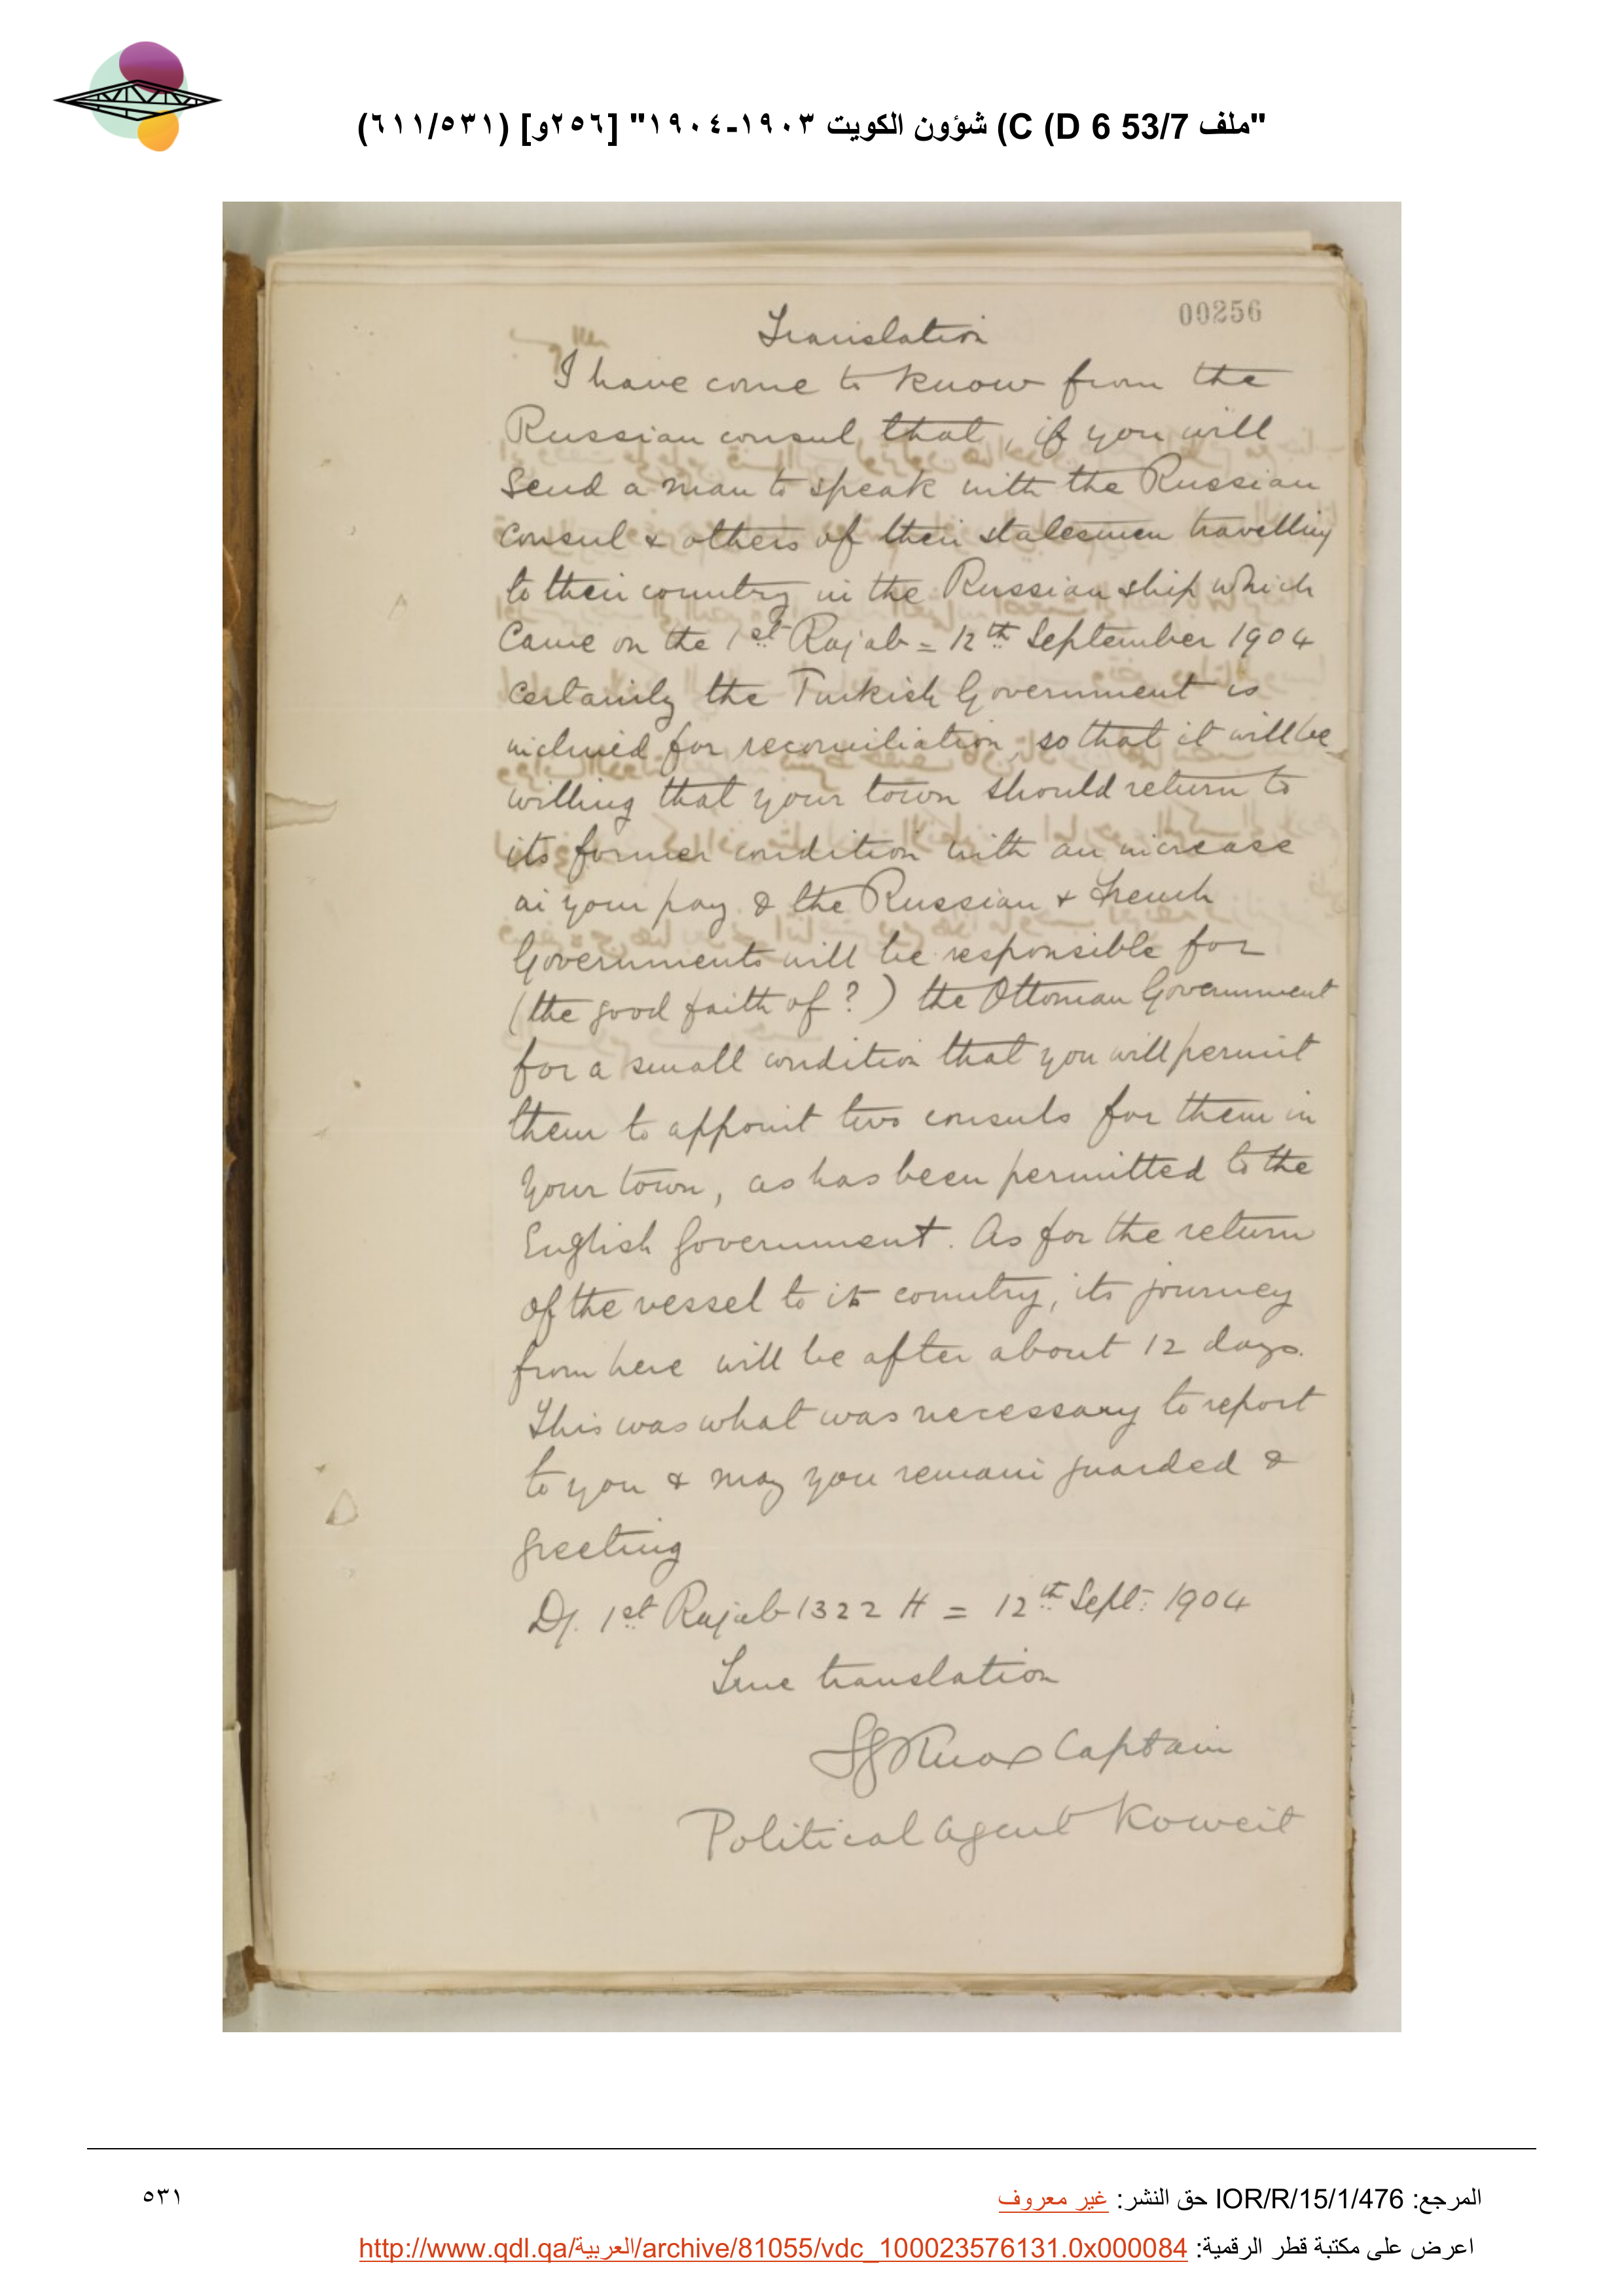 "ملف 53/7 C (D 6) شؤون الكويت ١٩٠٣-١٩٠٤" [٢٥٦و] (٦١١/٥٣١)
00256
Translation
I have come to know from the
Russian consul that, if you will
send a man to speak with the Russian
Consul & others of their statesmen travelling
to their country in the Russian ship which
came on the 1st Rajab = 12th September 1904
certainly the Turkish Government is
inclined for reconciliation, so that it will be
willing that your town should return to
its former condition with an increase
in your pay & the Russian & French
Governments will be responsible for
(the good faith of?) the Ottoman Government
for a small condition that you will permit
them to appoint two consuls for them in
your town, as has been permitted to the
English Government. As for the return
of the vessel to its country, its journey
from here will be after about 12 days.
This was what was necessary to report
to you & may you remain guarded &
greeting
D/. 1st Rajab 1322 H = 12th Sept: 1904
True translation
SGKnox Captain
Political Agent Koweit
المرجع: IOR/R/15/1/476 حق النشر: غير معروف
٥٣١
اعرض على مكتبة قطر الرقمية: http://www.qdl.qa/العربية/archive/81055/vdc_100023576131.0x000084